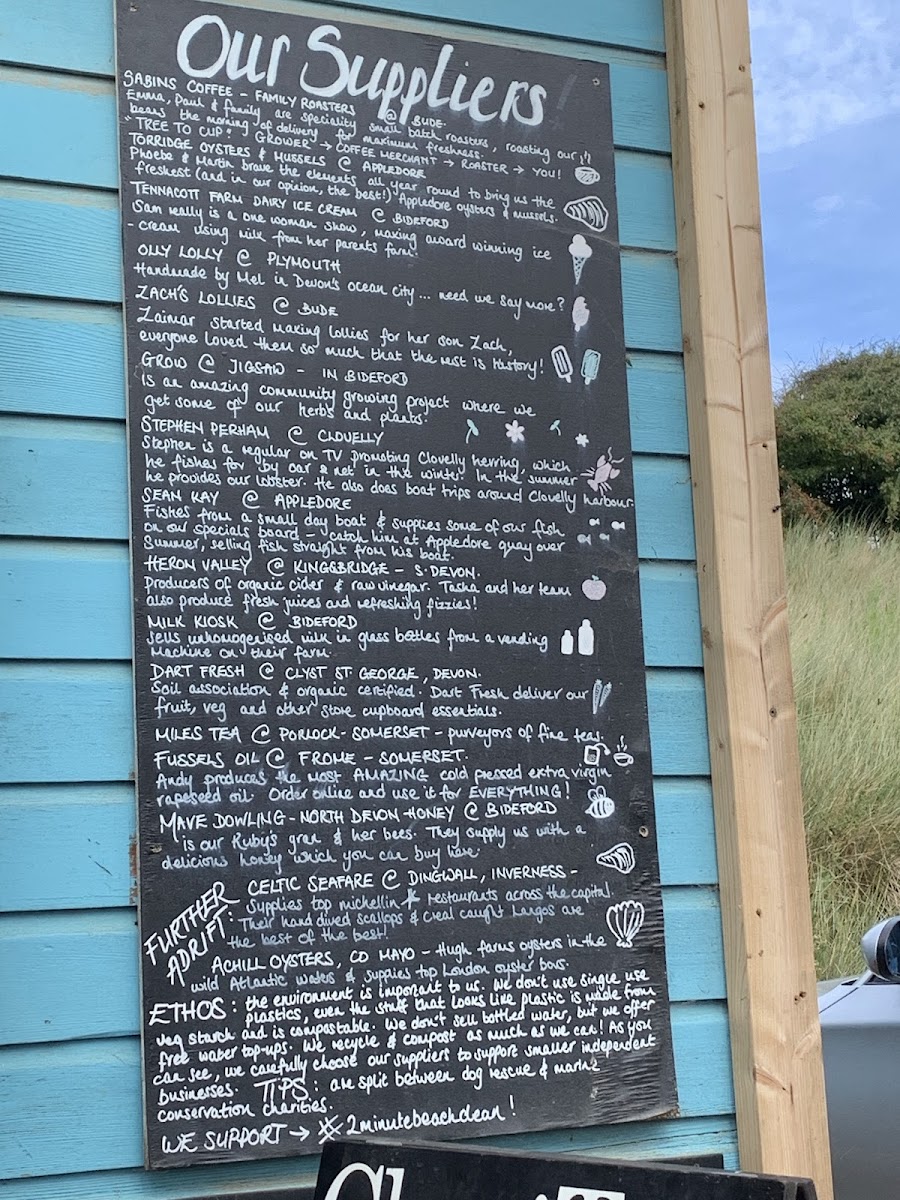 Our Suppliers
SABINS COFFEE - FAMILY ROASTERS @ BUDE.
Emma, Paul & family, are speciality small batch roasters, roasting our
beans the morning of delivery for maximum freshness.
"TREE TO CUP": GROWER → COFFEE MERCHANT → ROASTER → YOU!
TORRIDGE OYSTERS & MUSSELS @ APPLEDORE
Phoebe & Martin brave the elements all year round to bring us the
freshest (and in our opinion, the best!) Appledore oysters & mussels.
TENNACOTT FARM DAIRY ICE CREAM @ BIDEFORD
Sam really is a one woman show, making award winning ice
- cream using milk from her parents farm.
OLLY LOLLY @ PLYMOUTH
Handmade by Mel in Devon's ocean city... need we say more?
ZACH'S LOLLIES @ BUDE
Zaimar started making lollies for her son Zach,
everyone loved them so much that the rest is history!
GROW @ JIGSAW - IN BIDEFORD
is an amazing community growing project where we
get some of our herbs and plants.
STEPHEN PERHAM @ CLOVELLY
Stephen is a regular on TV promoting Clovelly herring, which
he fishes for by oar & net in the winter. In the summer
he provides our lobster. He also does boat trips around Clovelly harbour.
SEAN KAY @ APPLEDORE
Fishes from a small day boat & supplies some of our fish
on our specials board - catch him at Appledore quay over
Summer, selling fish straight from his boat.
HERON VALLEY @ KINGSBRIDGE - S. DEVON.
producers of organic cider & raw vinegar. Tasha and her team
also produce fresh juices and refreshing fizzies!
MILK KIOSK @ BIDEFORD
sells unhomogenised milk in glass bottles from a vending
machine on their farm.
DART FRESH @ CLYST ST GEORGE, DEVON.
Soil association & organic certified. Dart Fresh deliver our
fruit, veg and other store cupboard essentials.
MILES TEA @ PORLOCK - SOMERSET - purveyors of fine teas.
FUSSELS OIL @ FROME - SOMERSET.
Andy produces the most AMAZING cold pressed extra virgin
rapeseed oil. Order online and use it for EVERYTHING!
MAVE DOWLING - NORTH DEVON HONEY @ BIDEFORD
is our Ruby's gran & her bees. They supply us with a
delicious honey which you can buy here.
FURTHER
ADRIFT:
CELTIC SEAFARE @ DINGWALL, INVERNESS -
Supplies top michellin ★ restaurants across the capital.
Their hand dived scallops & creal caught Langos are
the best of the best!
ACHILL OYSTERS, CO MAYO - Hugh farms oysters in the
wild Atlantic waters & suppies top London oyster bars.
ETHOS: the environment is important to us. We don't use single use
plastics, even the stuff that looks like plastic is made from
veg starch and is compostable. We don't sell bottled water, but we offer
free water top-ups. We recycle & compost as much as we can! As you
can see, we carefully choose our suppliers to support smaller independent
businesses. TIPS: are split between dog rescue & marine
conservation charities.
WE SUPPORT → #2minutebeachclean!